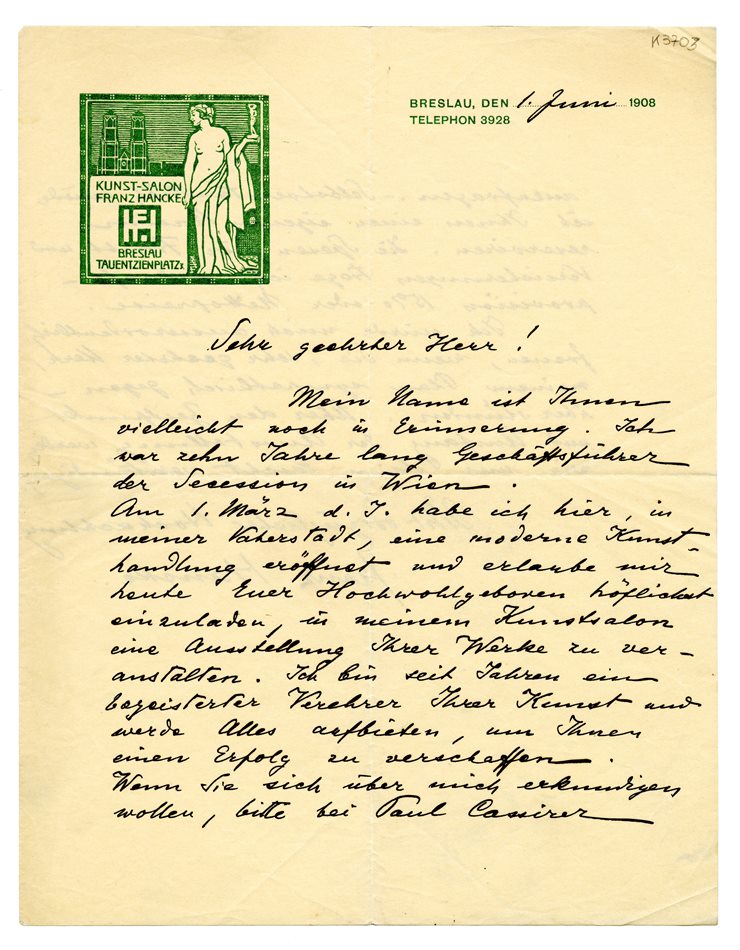 K3703
BRESLAU, DEN 1. Juni 1908
TELEPHON 3928
KUNST-SALON
FRANZ HANCKE
BRESLAU
TAUENTZIENPLATZ
Sehr geehrter Herr!
Mein Name ist Ihnen
vielleicht noch in Erinnerung. Ich
war zehn Jahre lang Geschäftsführer
der Secession in Wien.
Am 1. März d. J. habe ich hier, in
meiner Vaterstadt, eine moderne Kunst-
handlung eröffnet und erlaube mir
heute Euer Hochwohlgeboren höflichst
einzuladen, in meinem Kunstsalon
eine Ausstellung Ihrer Werke zu ver-
anstalten. Ich bin seit Jahren ein
begeisterter Verehrer Ihrer Kunst und
werde Alles aufbieten, um Ihnen
einen Erfolg zu verschaffen.
Wenn Sie sich über mich erkundigen
wollen, bitte bei Paul Cassirer